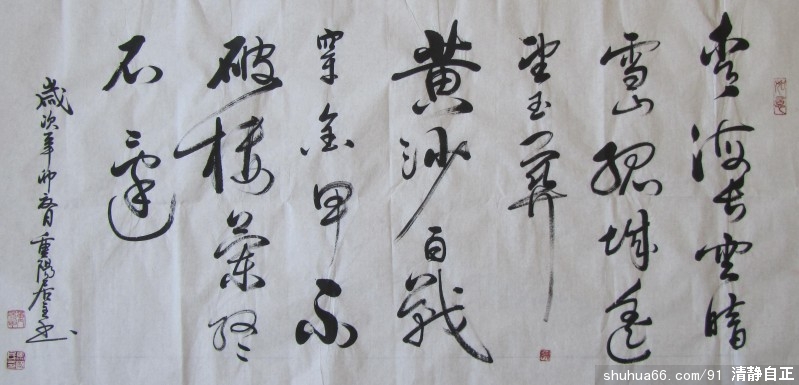 青海长雲暗
雪山孤城遥
望玉门関
黄沙百戰
穿金甲不
破楼蘭终
不還
歲次辛卯月重陽居主书
shuhua66.com/91 清静自正